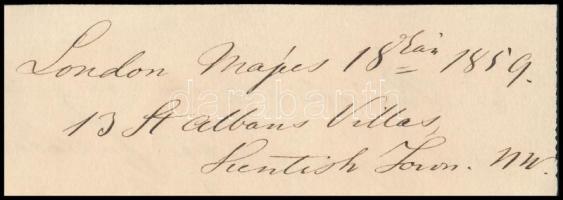 London Május 18kán 1859.
13 St Albans Villas,
Kentish Town. NW.
darabanth